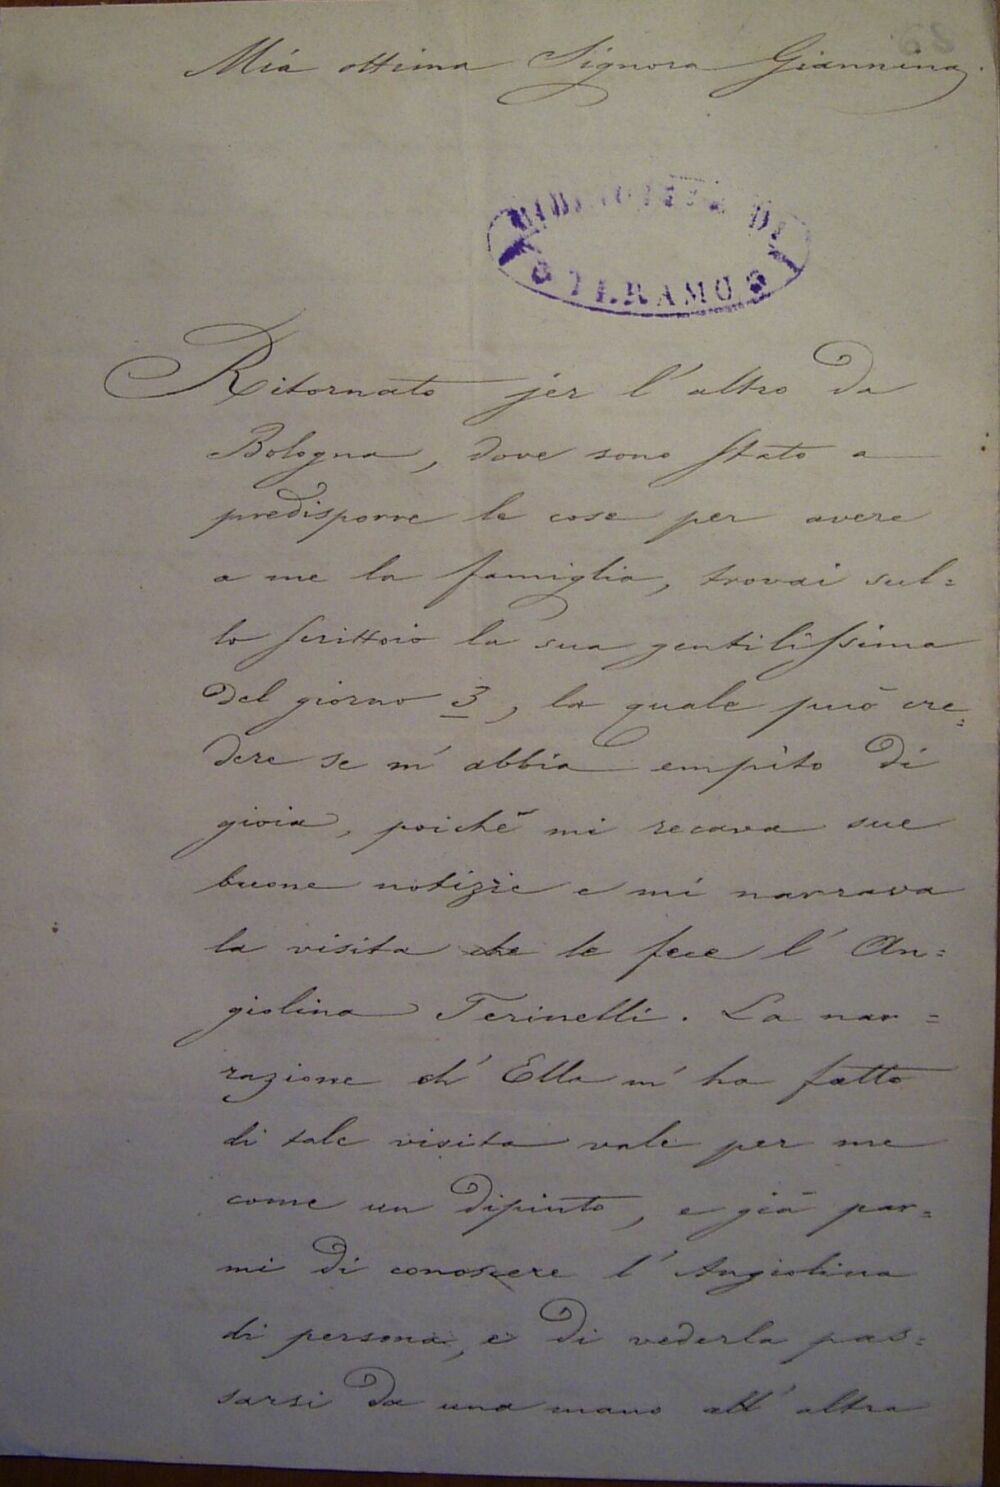 Mia ottima Signora Giannina.
BIBLIOTECA DI
TERAMO
Ritornato jer l'altro da
Bologna, dove sono stato a
predisporre le cose per avere
a me la famiglia, trovai sul=
lo scrittoio la sua gentilissima
del giorno 3, la quale può cre=
dere se m'abbia empito di
gioia, poichè mi recava sue
buone notizie e mi narrava
la visita che le fece l'An=
giolina Terinelli. La nar=
razione ch'Ella m'ha fatto
di tale visita vale per me
come un dipinto, e già par=
mi di conoscere l'Angiolina
di persona, e di vederla pas=
sarsi da una mano all'altra